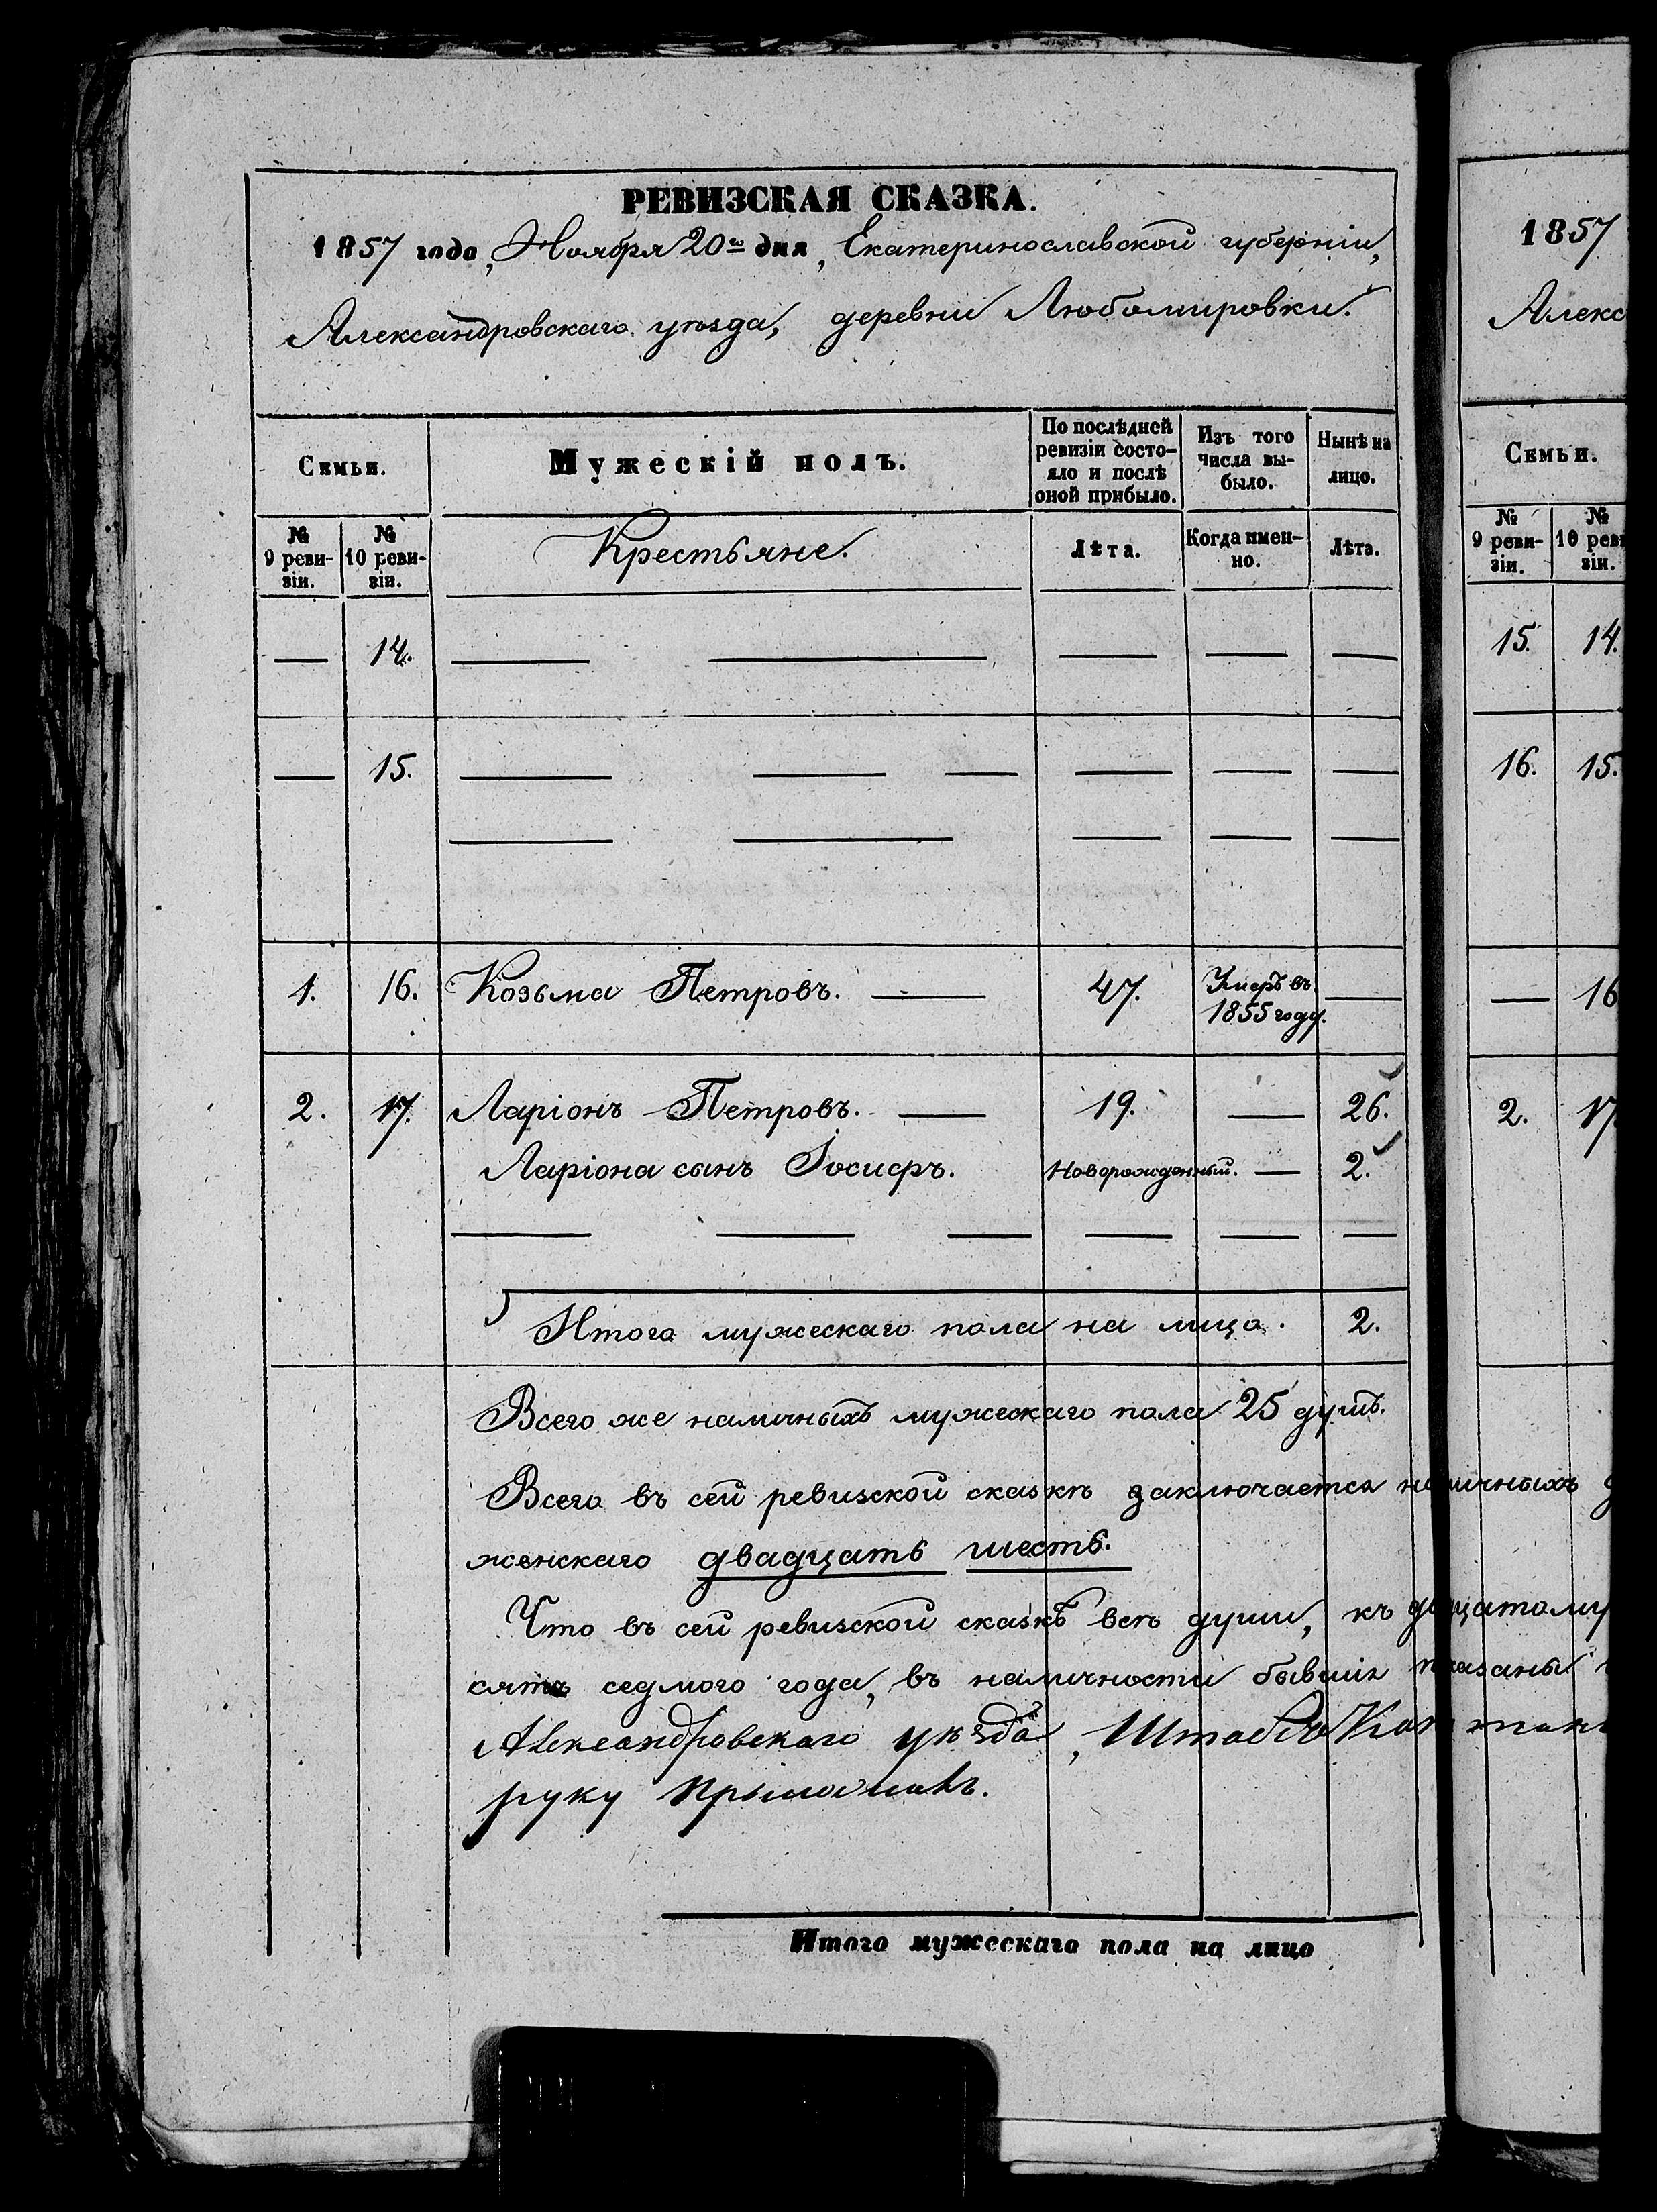 РЕВИЗСКАЯ СКАЗКА.
1857 года, Ноября 20го дня, Екатеринославской губерніи,
Александровскаго уѣзда, деревни Любомировки.
Семьи. Мужескій полъ. По послѣдней ревизіи состояло и послѣ оной прибыло. Изъ того числа выбыло. Нынѣ на лицо.
№ 9 ревизіи. № 10 ревизіи. Крестьяне. Лѣта. Когда именно. Лѣта.
— 14. — — — — —
— 15. — — — — — —
— — — — —
1. 16. Козьма Петровъ. — 47. Умеръ въ 1855 году. —
2. 17. Ларіонъ Петровъ. — 19. — 26.
Ларіона сынъ Іосифъ. Новорожденный. — 2.
— — — — — —
Итого мужескаго пола на лицо. 2.
Всего же наличныхъ мужескаго пола 25 душъ.
Всего въ сей ревизской сказкѣ заключается наличныхъ
женскаго двадцать шесть.
Что въ сей ревизской сказкѣ всѣ души, къ
сятъ седмого года, въ наличности бывшія
Александровскаго уѣзда, Штабсъ
руку приложилъ.
Итого мужескаго пола на лицо
1857
Алекс
Семьи.
№ 9 ревизіи. № 10 реви зіи.
15. 14.
16. 15.
— 16
2. 17